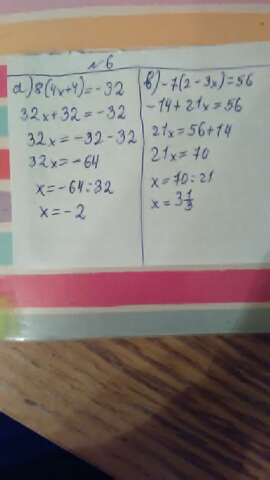 №6
а) 8(4x+4)=-32
32x+32=-32
32x=-32-32
32x=-64
x=-64:32
x=-2
в) -7(2-3x)=56
-14+21x=56
21x=56+14
21x=70
x=70:21
x=3 1/3